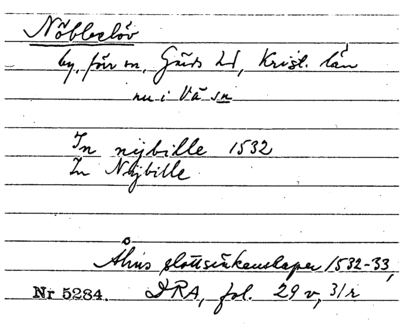 Nöbbelöv
by, förr m, Gärds hd, Krist. län
nu i Vä sn
In nybille 1532
In Nybille
Åhus slottsräkenskaper 1532-33,
Nr 5284. DRA, fol. 29 v, 31 r